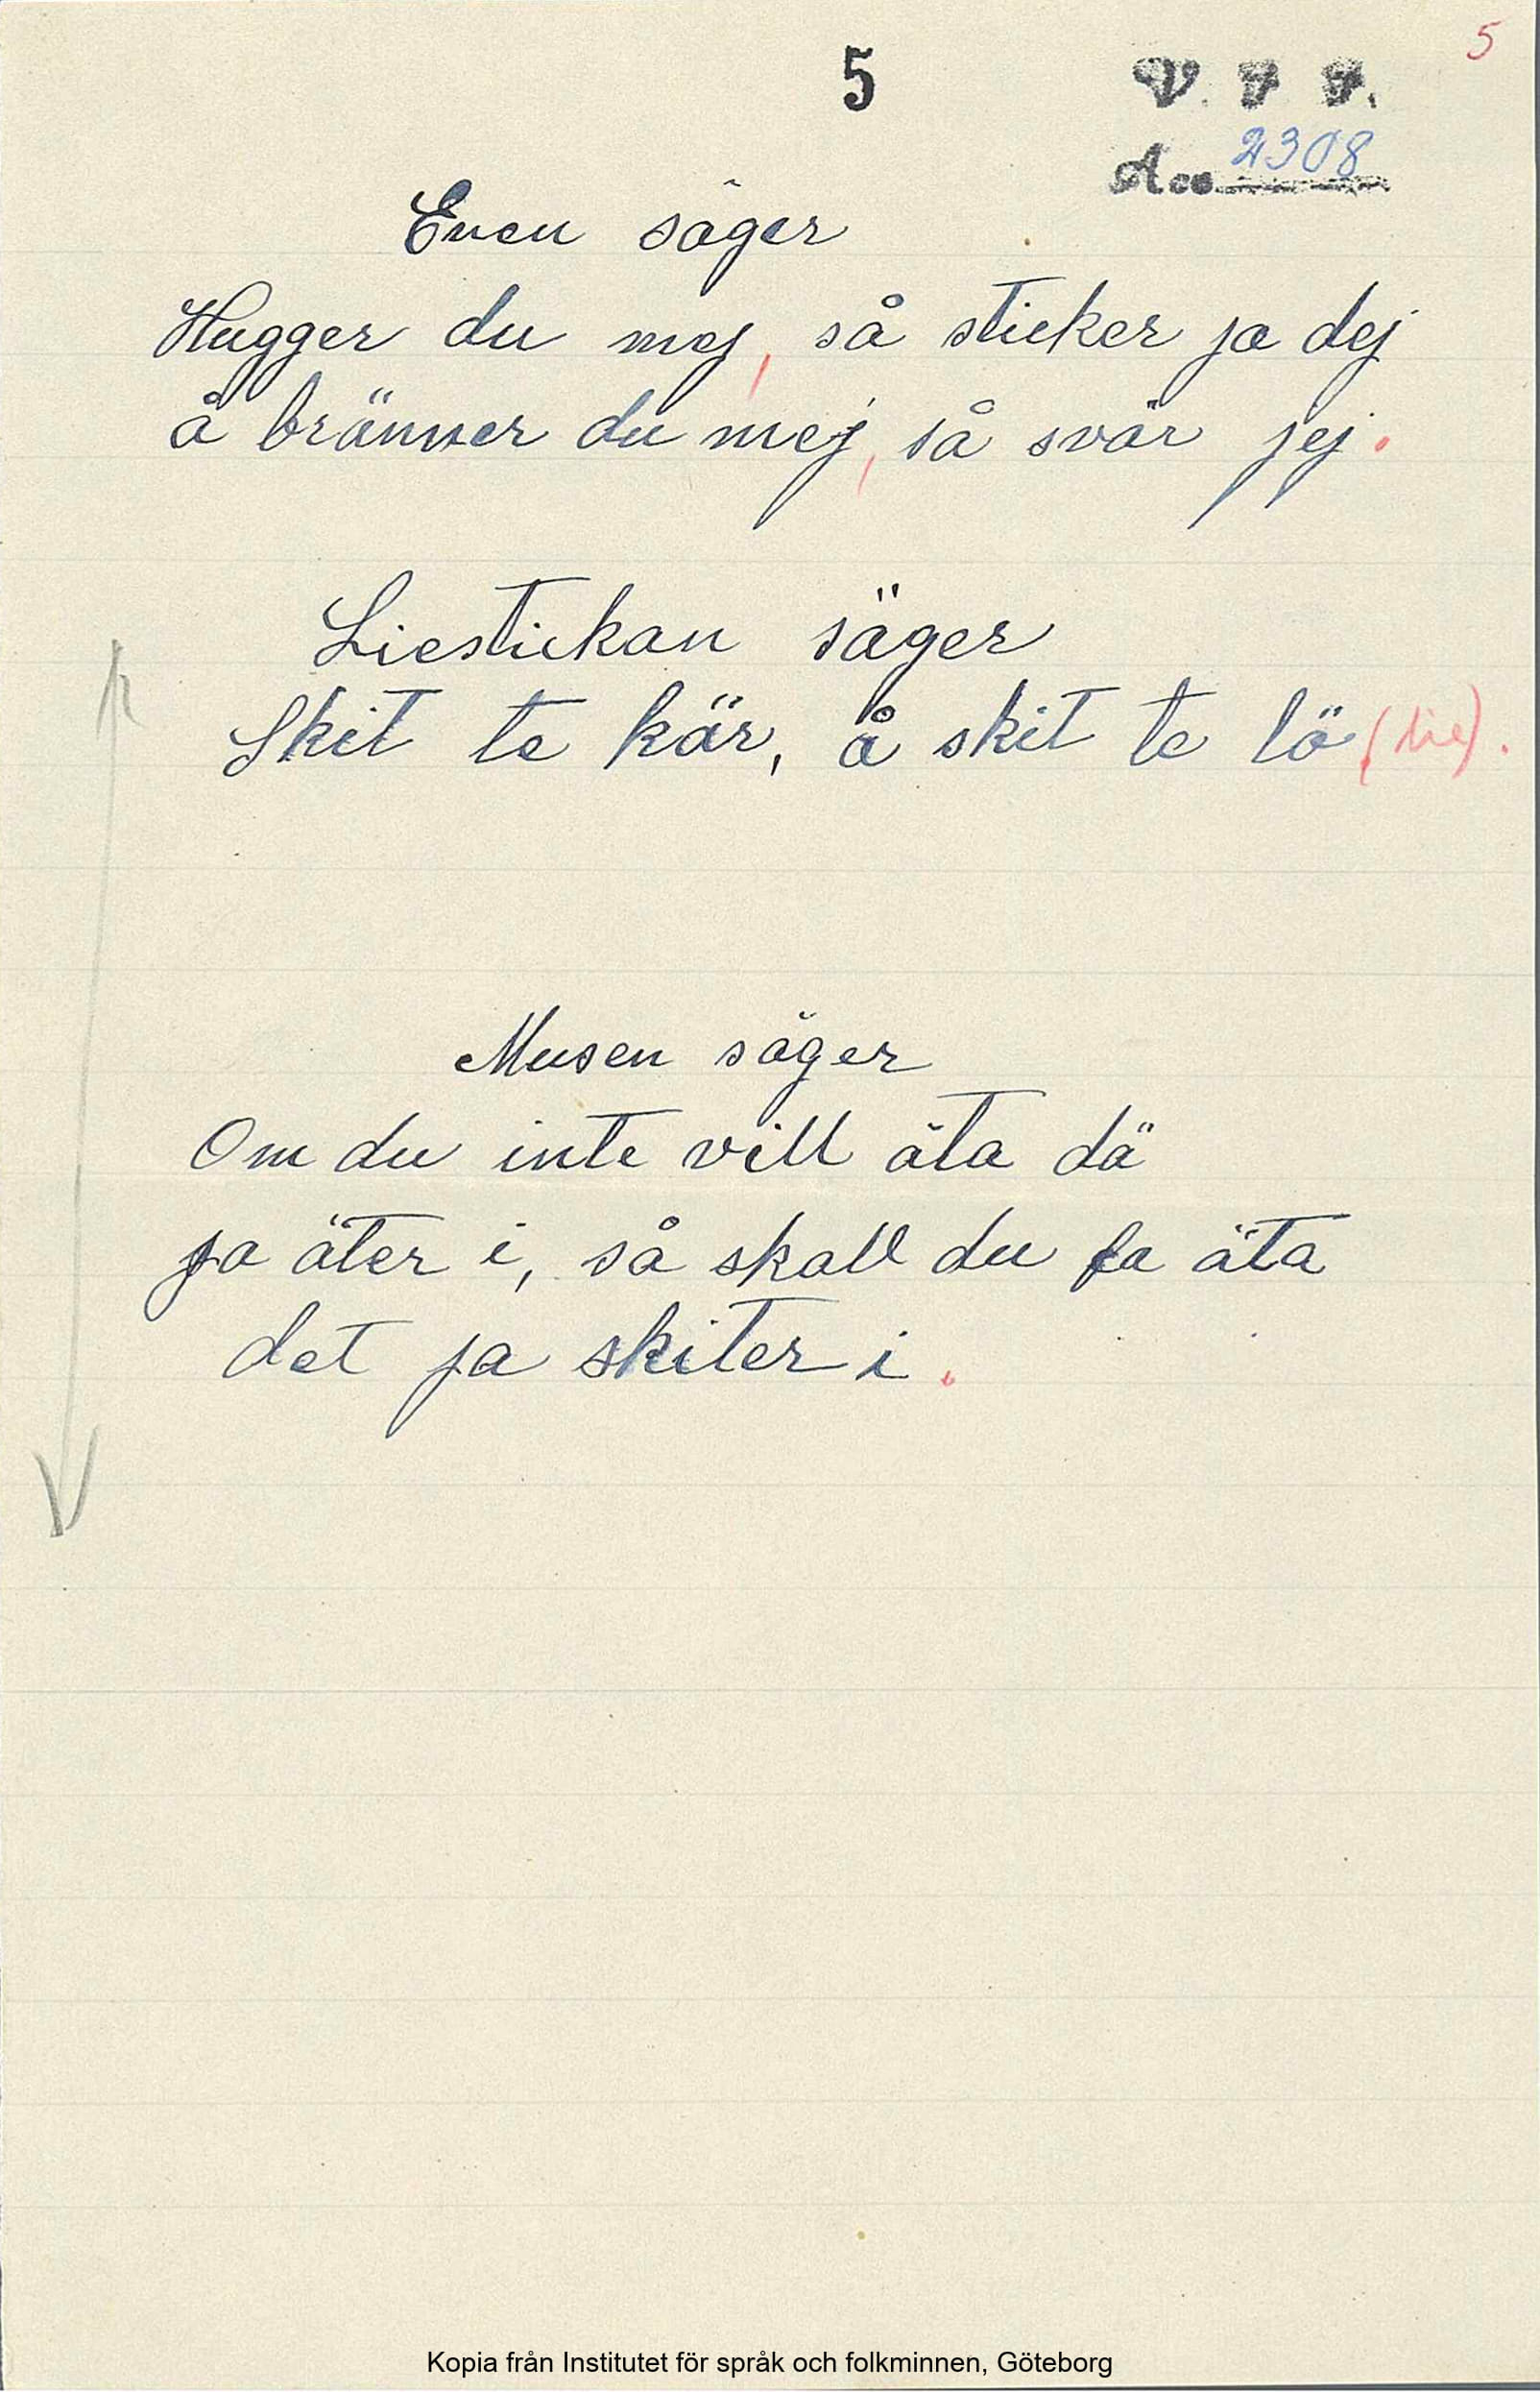 5
5
V. F. F.
Acc. 2308
Enen säger
Hugger du mej, så sticker ja dej
å bränner du mej, så svär jej.
Liestickan säger
Skit te kär, å skit te lö (lie).
Musen säger
Om du inte vill äta dä
ja äter i, så skall du fa äta
det ja skiter i.
Kopia från Institutet för språk och folkminnen, Göteborg